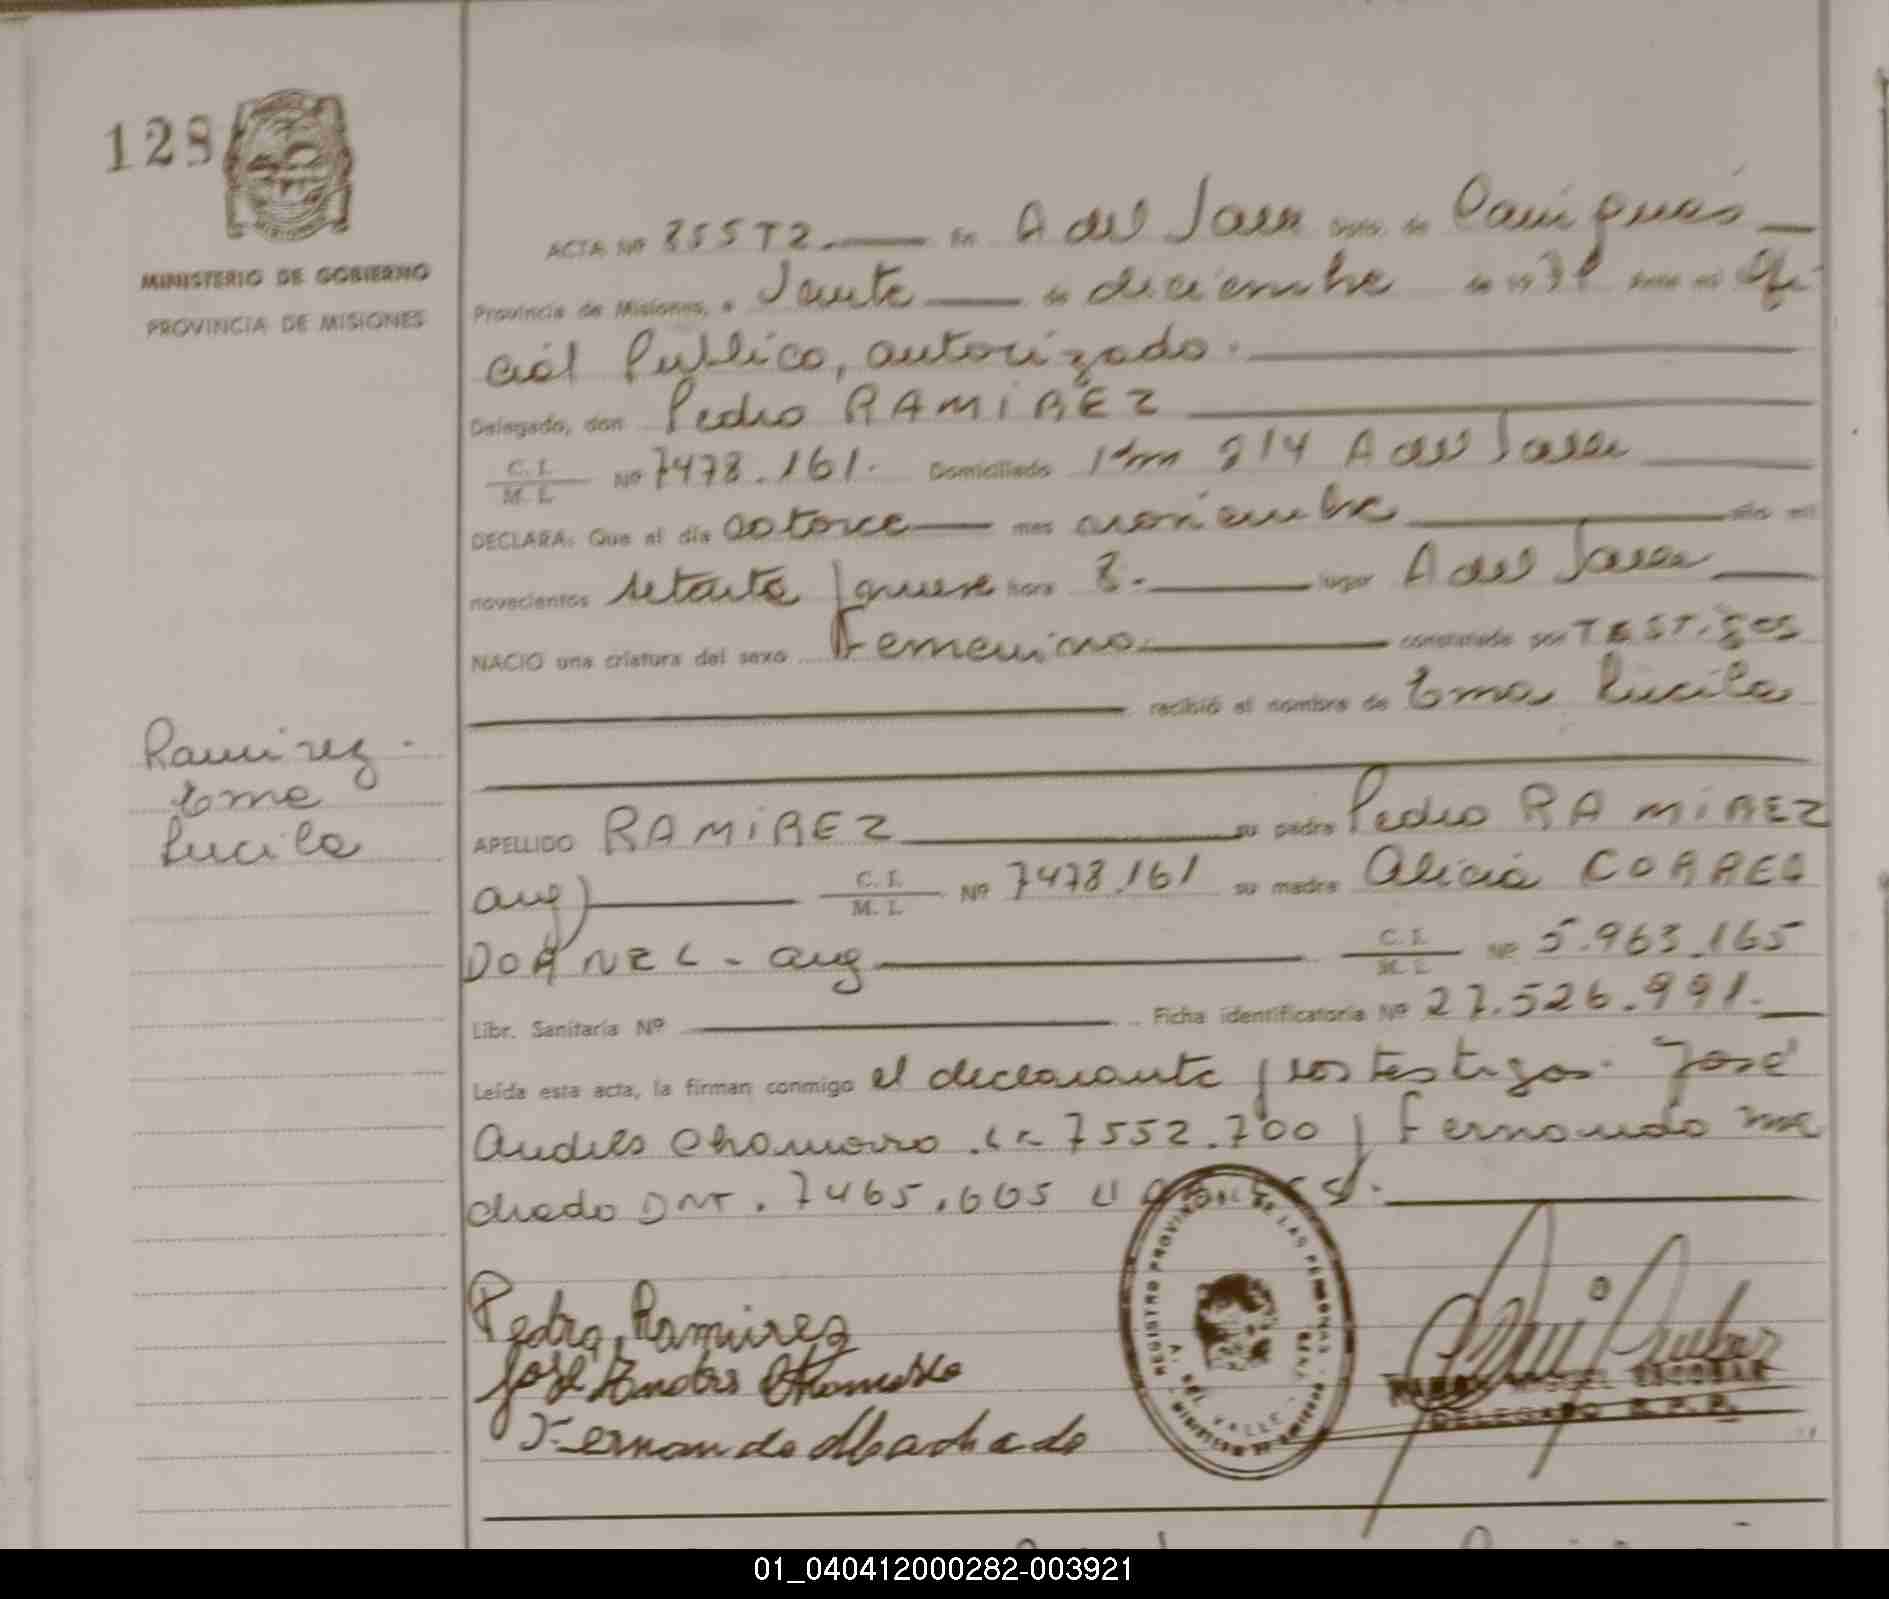 128
MINISTERIO DE GOBIERNO
PROVINCIA DE MISIONES
ACTA Nº 355T2. En A del Valle Dpto. de Cainguás
Provincia de Misiones, a Vente de diciembre de 19 Ante mi Ofi
cial Publico, autorizado.
Delegado, don Pedro RAMIREZ
C. I. / M. I. Nº 7478.161. Domiciliado Km 214 A del Valle
DECLARA: Que el día catorce mes noviembre año mil
novecientos setenta y nueve hora 8. lugar A del Valle
NACIO una criatura del sexo Femenino constatado por TESTigos
recibió el nombre de Ema Lucila
Ramirez.
Ema
Lucila
APELLIDO RAMIREZ su padre Pedro RAMIREZ
arg) C. I. / M. I. Nº 7478.161 su madre Alicia CORREA
DORNEL - arg C. I. / M. I. Nº 5.963.165
Libr. Sanitaria Nº Ficha identificatoria Nº 27.526.991.
Leída esta acta, la firman conmigo el declarante y los testigos. José
Andrés Chamorro. 7552.700 y Fernando Ma
chado DNI. 7465.605
Pedro, Ramirez
José Andrés Chamorro
Fernando Machado
REGISTRO PROVINCIAL DE LAS PERSONAS
A. DEL VALLE
RAMON MIGUEL ESCOBAR
DELEGADO R.P.P.
01_040412000282-003921